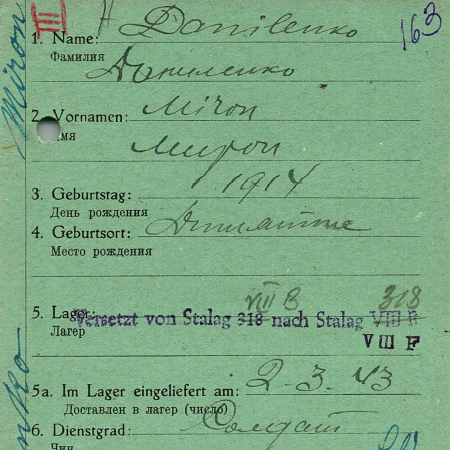 III
163
1. Name: Danilenko
Фамилия
Даниленко
Miron
2. Vornamen: Miron
Имя
Мирон
3. Geburtstag: 1914
День рождения
4. Geburtsort:
Место рождения
VIII B 318
5. Lager: Versetzt von Stalag 318 nach Stalag VIII B
Лагер
VIII F
5a. Im Lager eingeliefert am: 2-3.43
Доставлен в лагер (число)
6. Dienstgrad: Солдат
Чин